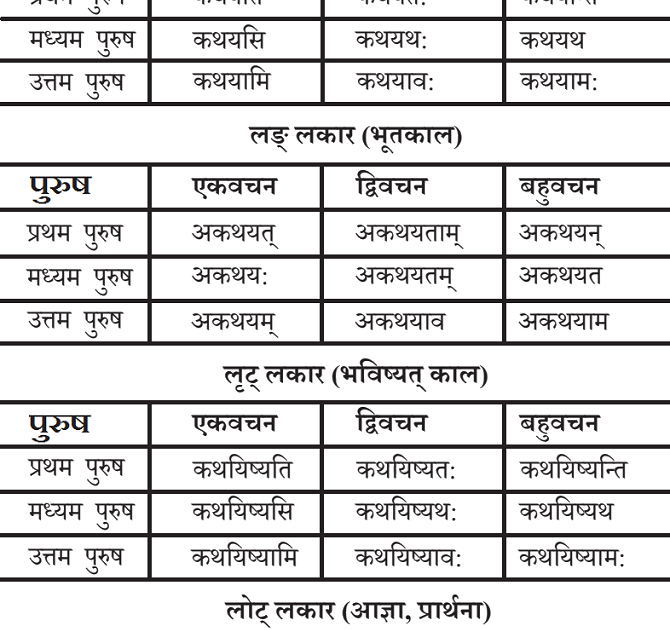 प्रथम पुरुष कथयति कथयत: कथयन्ति
मध्यम पुरुष कथयसि कथयथ: कथयथ
उत्तम पुरुष कथयामि कथयाव: कथयाम:
लङ् लकार (भूतकाल)
पुरुष एकवचन द्विवचन बहुवचन
प्रथम पुरुष अकथयत् अकथयताम् अकथयन्
मध्यम पुरुष अकथय: अकथयतम् अकथयत
उत्तम पुरुष अकथयम् अकथयाव अकथयाम
लृट् लकार (भविष्यत् काल)
पुरुष एकवचन द्विवचन बहुवचन
प्रथम पुरुष कथयिष्यति कथयिष्यत: कथयिष्यन्ति
मध्यम पुरुष कथयिष्यसि कथयिष्यथ: कथयिष्यथ
उत्तम पुरुष कथयिष्यामि कथयिष्याव: कथयिष्याम:
लोट् लकार (आज्ञा, प्रार्थना)